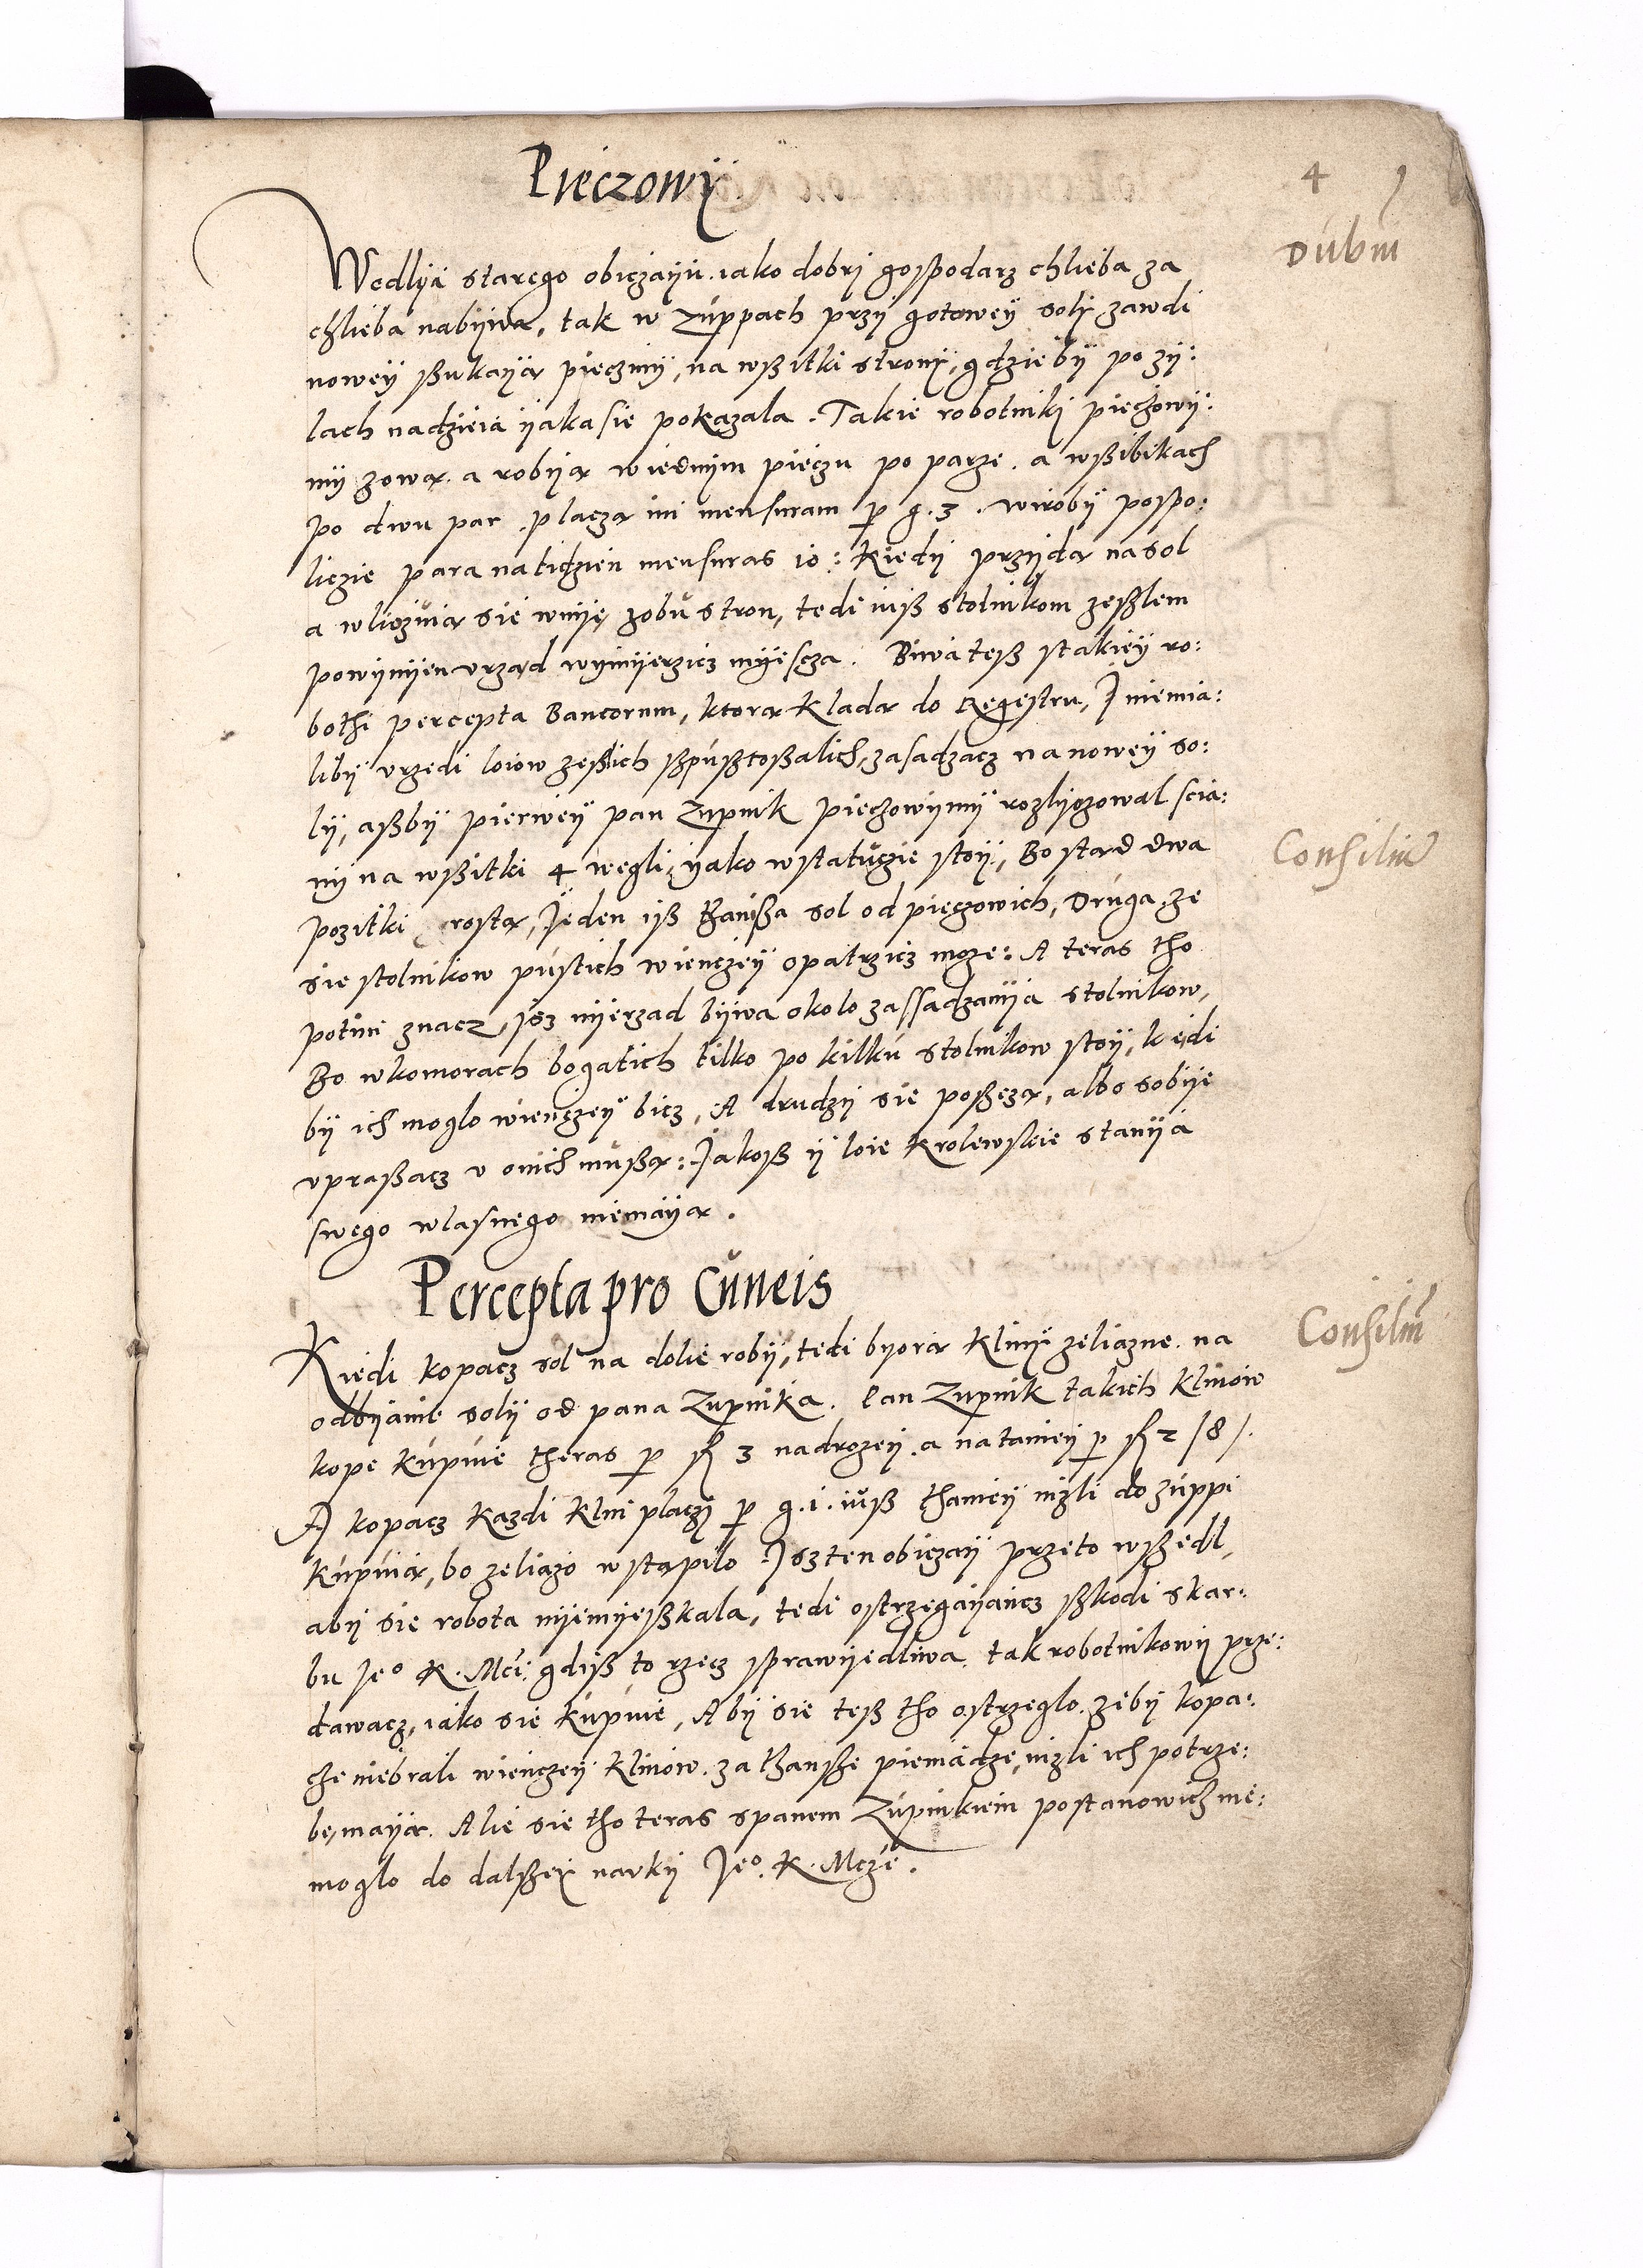 Pieczowÿ
4
Dubiū
Wedlijá starego obiczaÿu. iako dobrÿ gosßpodarz chlieba za
chlieba nabÿwa, tak w Zuppach przÿ gotowey solÿ zawdi
nowey ßukaÿą pieczmÿ, na wßitki stronÿ, gdzie bÿ po zÿ:
lach nadzieiá ÿaka sie pokazala. Takie robotnikÿ pieczowÿ:
mÿ zową. a robÿą wiednÿm pieczu po parze. a wßibikach
po dwu par. placzą im mensuram ꝑ g. 3. wirobÿ pospo:
liczie para na tidzień mensuras 10: Kiedÿ przÿdą na sol
a wlicznią sie wnię zobu stron, tedi iuß stolnikom zeßlem
powÿnÿen vrząd wÿmÿerzicz mÿescza. Biwa teß stakieÿ ro:
bothi percepta Bancorum, ktorą kladą do Regestru, J niemia:
libÿ vrzedi loiow zeßlich ßpußtoßalich, zasadzacz na noweÿ so:
lÿ, aßbÿ pierweÿ pan Zupnik pieczowÿmÿ rozlÿczowal scia:
nÿ na wßitki 4 węgli, ÿako wstatuczie stoÿ, Bo stąd dwa
Consiliū
pozitki rostą, Jeden iß thanßa sol od pieczowich, Druga, ze
sie stolnikow pustich wienczeÿ opatrzicz moze: A teras tho
potim znacz, isz nÿerząd bÿwa okolo zassadzanÿa stolnikow,
Bo wkomorach bogatich tilko po kilku stolnikow stoÿ, kędi
bÿ ich moglo wienczeÿ bicz, A drudzÿ sie poßczą, albo sobÿe
vpraßacz v onich mußą: Jakoß ÿ loie Krolewskie stanÿa
swego wlasnego niemaÿą.
Percepta pro Cuneis
Consiliū
Kiedi kopacz sol na dolie robÿ, tedi bÿorą klinÿ zeliazne. na
odbÿanie solÿ od pana Zupnika. Pan Zupnik takich klinow
kope kupuie theras ꝑ fl 3 nadrozeÿ, a nataniey ꝑ fl 2 /8/.
A kopacz kazdi klin placzÿ ꝑ g. 1. iuß thanieÿ nizli do zuppi
kupuią, bo zeliazo wstąpilo. Jsz ten obiczaÿ przeto wßedl,
abÿ sie robota nÿemÿeßkala, tedi ostrzegaÿancz ßkodi skar:
bu Jeᵒ K. Mci: gdiß to rzecz sprawÿedliwa. tak robotnikowÿ prze:
dawacz, iako sie kupuie, A bÿ sie teß tho ostrzeglo. zebÿ kopa:
cze niebrali wienczeÿ klinow. za thanße pieniądze, nizli ich potrze:
be, maÿą. Alie sie tho teras spanem Zupnikiem postanowicz nie:
moglo do dalßeÿ naukÿ Jeᵒ. K. Mcze.